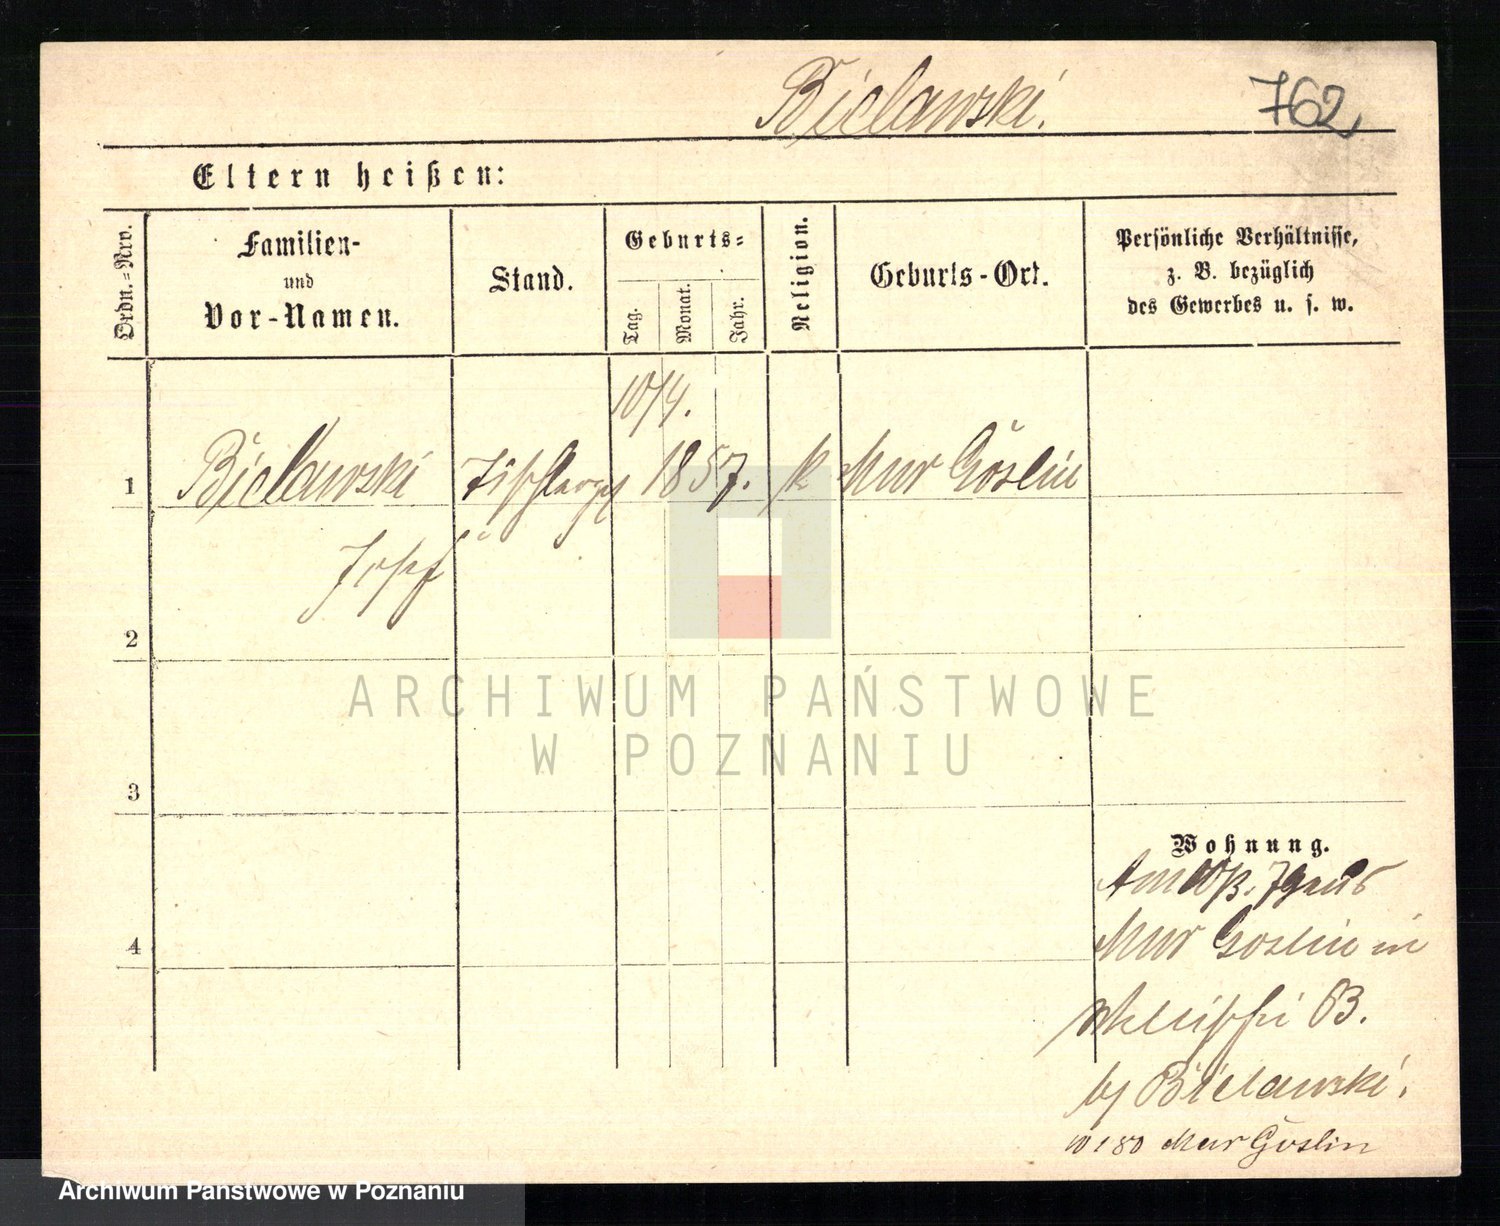 Bielawski.
762
Eltern heißen:
Ordn.-Nro.
Familien-
und
Vor-Namen.
Stand.
Geburts-
Tag.
Monat.
Jahr.
Religion.
Geburts-Ort.
Persönliche Verhältnisse,
z. B. bezüglich
des Gewerbes u. s. w.
10/4.
1 Bielawski Tischlerges 1857. k Mur Goslin
Josef
2
3
4
Wohnung.
Am 10/3. 79 aus
Mur Goslin in
63.
by Bielawski.
10 1 80 Mur Goslin
ARCHIWUM PAŃSTWOWE
W POZNANIU
Archiwum Państwowe w Poznaniu